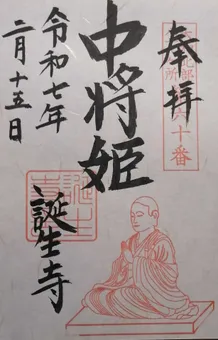 奉拝
六十番
中将姫
誕生寺
令和七年
二月十五日
誕生寺